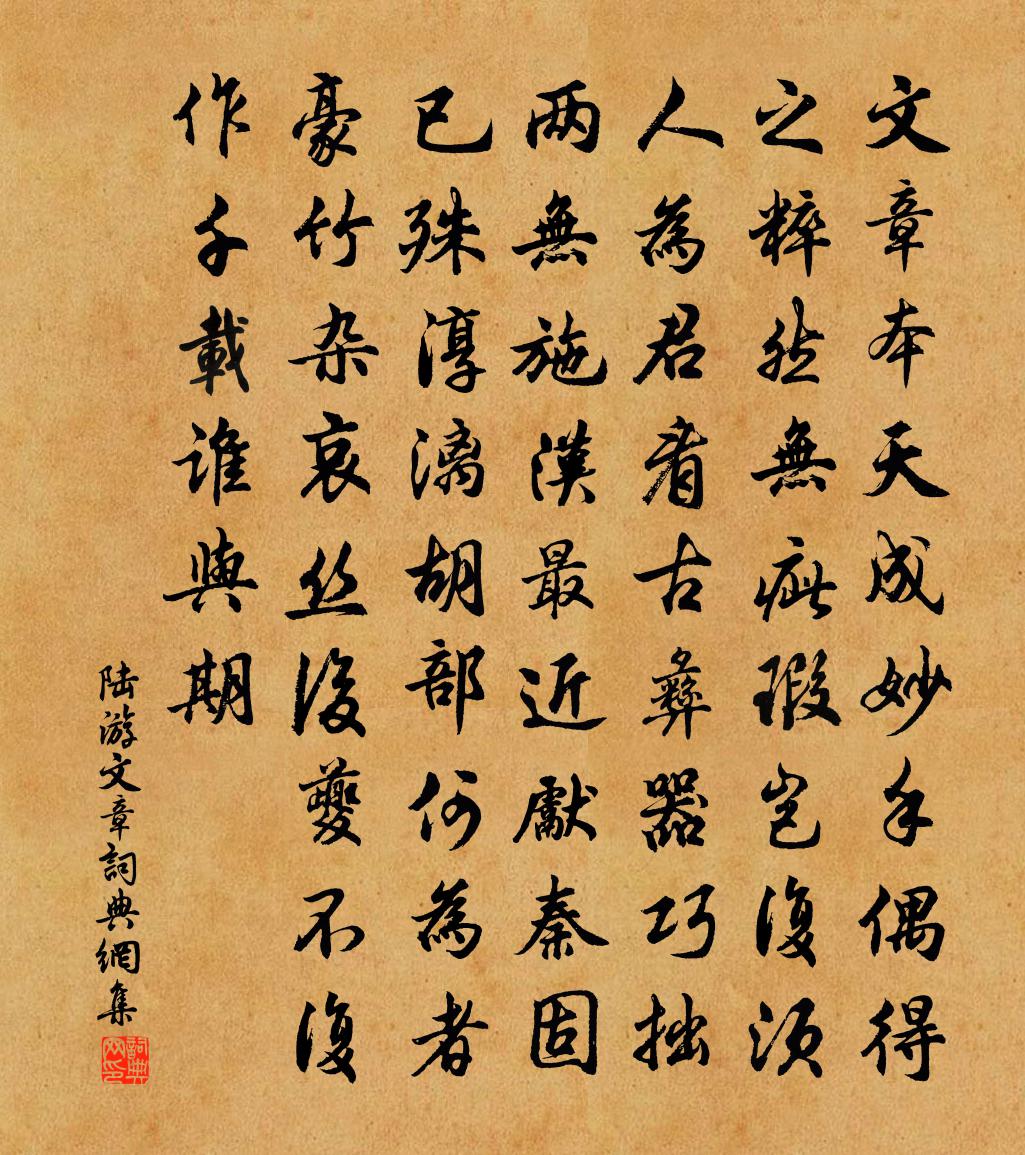 文章本天成妙手偶得
之粹然無疵瑕豈復須
人為君看古彝器巧拙
两無施漢最近獻秦固
已殊淳漓胡部何為者
豪竹杂哀丝後夔不復
作千載谁與期
陆游文章詞典網集
詞典网印